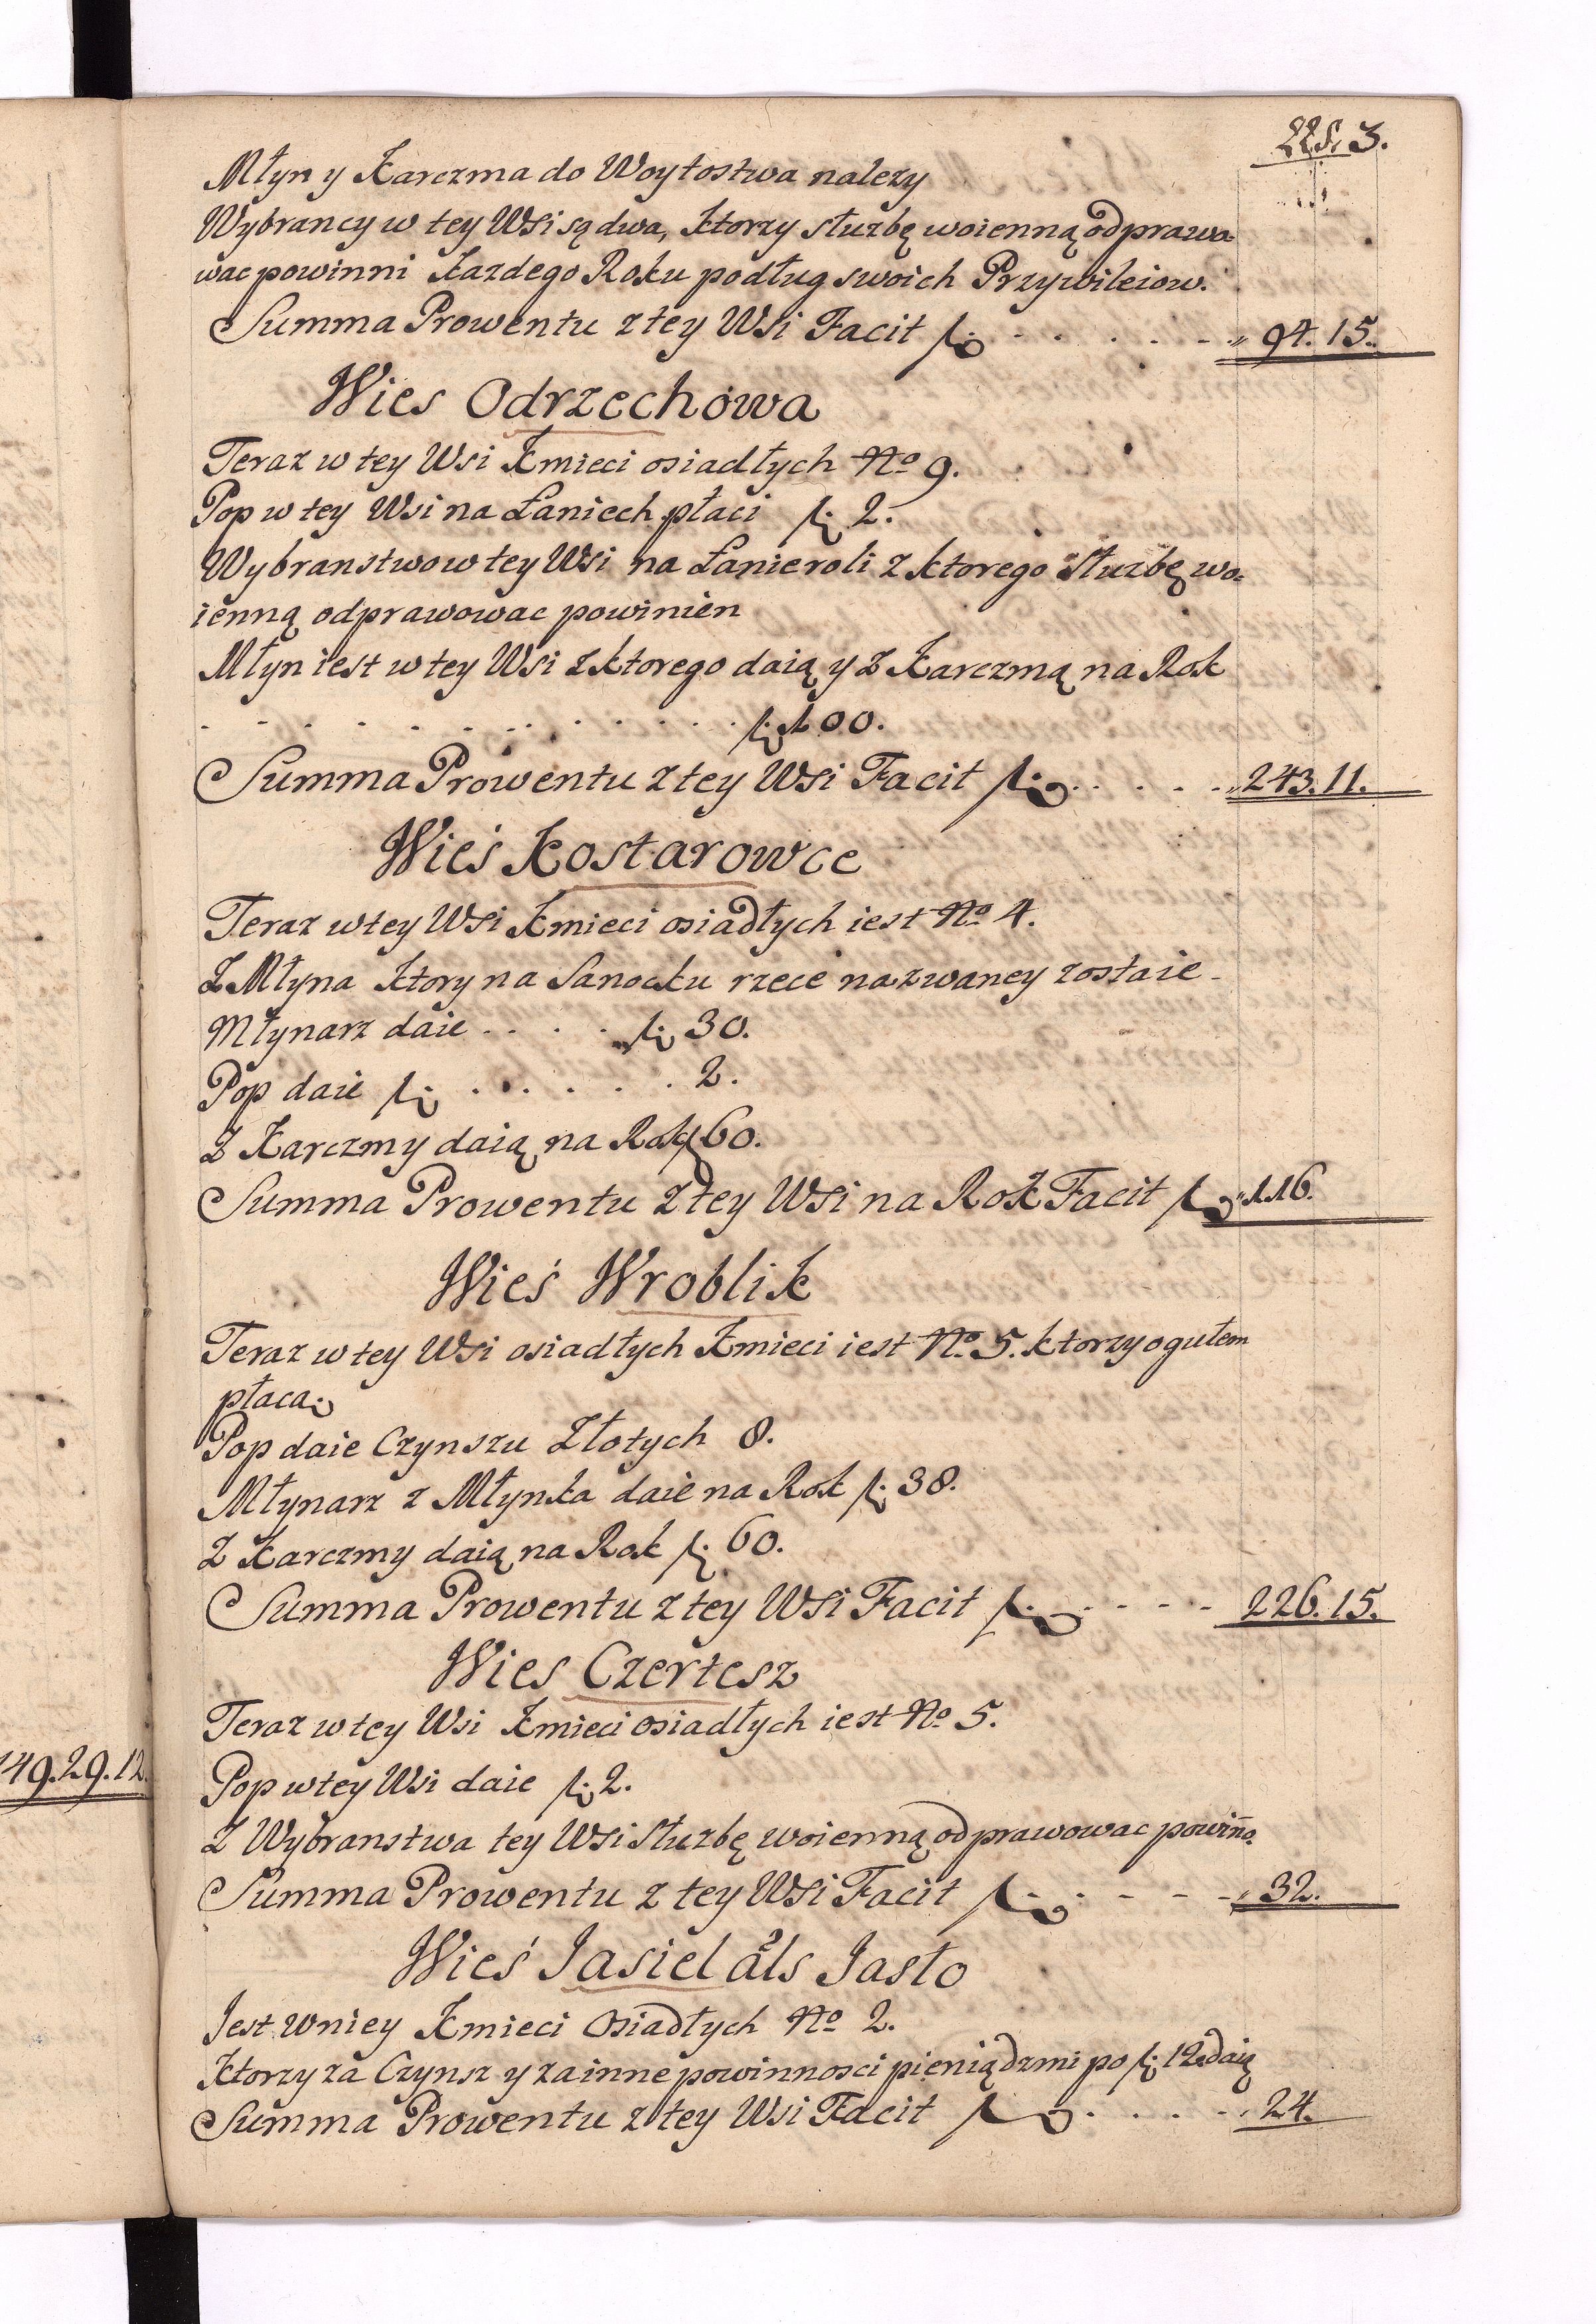 3.
Młyn y Karczma do Woytostwa nalezy
Wybrancy w tey Wsi są dwa, ktorzy słuzbę woienną odprawo-
wac powinni kazdego Roku podług swoich Przywileiow.
Summa Prowentu z tey Wsi Facit fl: 94. 15.
Wies Odrzechowa
Teraz w tey Wsi Kmieci osiadłych No 9.
Pop w tey Wsi na Łaniech płaci fl: 2.
Wybranstwo w tey Wsi na Łanie roli z ktorego Słuzbę wo=
ienną odprawowac powinien
Młyn iest w tey Wsi z ktorego daią y z Karczmą na Rok
fl: 100.
Summa Prowentu z tey Wsi Facit fl: 243. 11.
Wieś Kostarowce
Teraz w tey Wsi Kmieci osiadłych iest No 4.
Z Młyna ktory na Sanocku rzece nazwaney zostaie
Młynarz daie fl: 30.
Pop daie fl: 2.
Z Karczmy daią na Rok fl 60.
Summa Prowentu z tey Wsi na Rok Facit fl: 116.
Wieś Wroblik
Teraz w tey Wsi osiadłych Kmieci iest No. 5. ktorzy ogułem
płaca:
Pop daie Czynszu Złotych 8.
Młynarz z Młynka daie na Rok fl: 38.
Z Karczmy daią na Rok fl: 60.
Summa Prowentu z tey Wsi Facit fl: 226. 15.
Wies Czertesz
Teraz w tey Wsi Kmieci osiadłych iest No 5.
Pop w tey Wsi daie fl: 2.
149. 29. 12.
Z Wybranstwa tey Wsi Słuzbę woienną odprawowac powiño.
Summa Prowentu z tey Wsi Facit fl: 32.
Wieś Jasiel als Jasło
Jest w niey Kmieci Osiadłych No 2.
Ktorzy za Czynsz y za inne powinnosci pieniądzmi po fl: 12 daią
Summa Prowentu z tey Wsi Facit fl: 24.